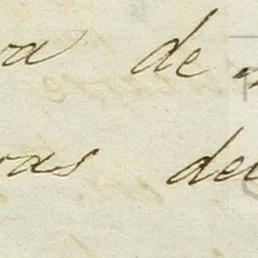 va de
ras del